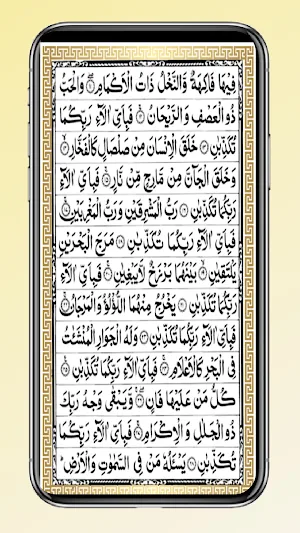 فِيۡهَا فَاكِهَةٌ وَّالنَّخۡلُ ذَاتُ الۡاَكۡمَامِ ۖ‏﴿۱۱﴾ وَالۡحَبُّ
ذُو الۡعَصۡفِ وَالرَّيۡحَانُ‌ۚ‏﴿۱۲﴾ فَبِاَىِّ اٰلَاۤءِ رَبِّكُمَا
تُكَذِّبٰنِ‏﴿۱۳﴾ خَلَقَ الۡاِنۡسَانَ مِنۡ صَلۡصَالٍ كَالۡفَخَّارِۙ‏﴿۱۴﴾
وَخَلَقَ الۡجَآنَّ مِنۡ مَّارِجٍ مِّنۡ نَّارٍ‌ۚ‏﴿۱۵﴾ فَبِاَىِّ اٰلَاۤءِ
رَبِّكُمَا تُكَذِّبٰنِ‏﴿۱۶﴾ رَبُّ الۡمَشۡرِقَيۡنِ وَ رَبُّ الۡمَغۡرِبَيۡنِ‌ۚ‏﴿۱۷﴾
فَبِاَىِّ اٰلَاۤءِ رَبِّكُمَا تُكَذِّبٰنِ‏﴿۱۸﴾ مَرَجَ الۡبَحۡرَيۡنِ
يَلۡتَقِيٰنِۙ‏﴿۱۹﴾ بَيۡنَهُمَا بَرۡزَخٌ لَّا يَبۡغِيٰنِ‌ۚ‏﴿۲۰﴾ فَبِاَىِّ اٰلَاۤءِ
رَبِّكُمَا تُكَذِّبٰنِ‏﴿۲۱﴾ يَخۡرُجُ مِنۡهُمَا اللُّؤۡلُؤُ وَالۡمَرۡجَانُ‌ۚ‏﴿۲۲﴾
فَبِاَىِّ اٰلَاۤءِ رَبِّكُمَا تُكَذِّبٰنِ‏﴿۲۳﴾ وَلَهُ الۡجَوَارِ الۡمُنۡشَئٰتُ
فِى الۡبَحۡرِ كَالۡاَعۡلَامِ‌ۚ‏﴿۲۴﴾ فَبِاَىِّ اٰلَاۤءِ رَبِّكُمَا تُكَذِّبٰنِ‏﴿۲۵﴾
كُلُّ مَنۡ عَلَيۡهَا فَانٍ‌ۚ‏﴿۲۶﴾ وَّيَبۡقٰى وَجۡهُ رَبِّكَ
ذُو الۡجَلٰلِ وَالۡاِكۡرَامِ‌ۚ‏﴿۲۷﴾ فَبِاَىِّ اٰلَاۤءِ رَبِّكُمَا
تُكَذِّبٰنِ‏﴿۲۸﴾ يَسۡـَٔـلُهٗ مَنۡ فِى السَّمٰوٰتِ وَالۡاَرۡضِ‌ؕ